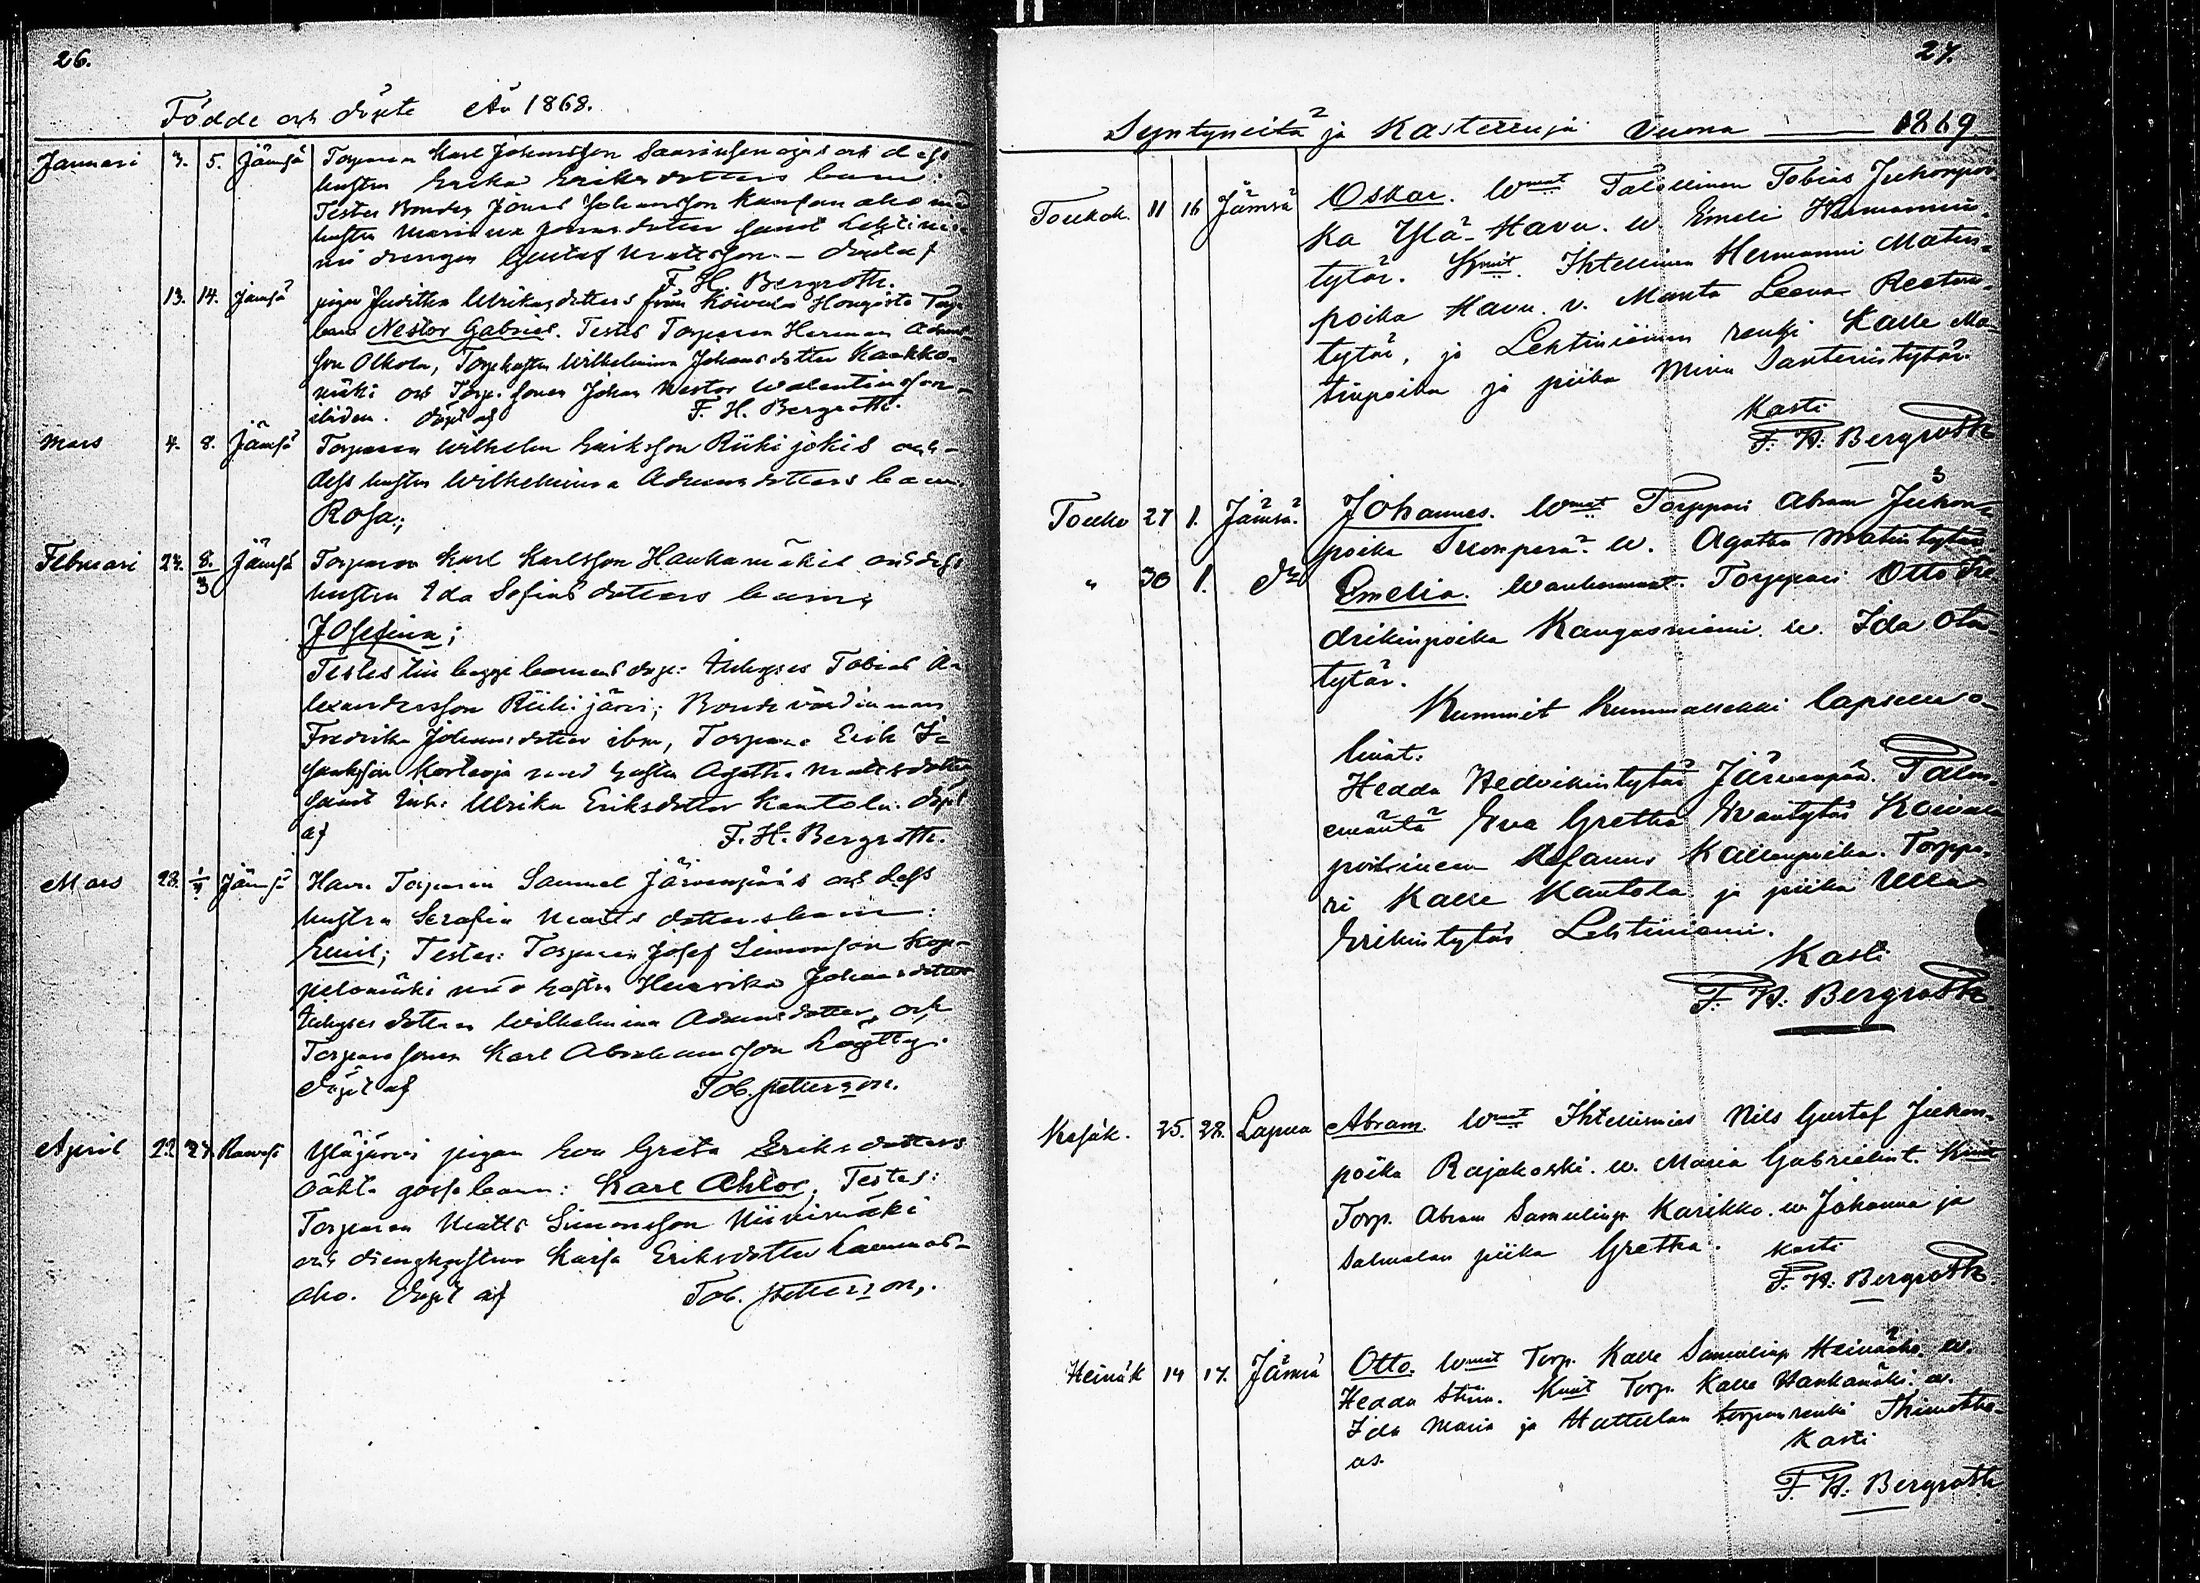 26.
Födde och döpte År 1868.
Januari 3. 5. Jämsä Torparen Karl Johansson och dess
hustru Erika Eriksdotters barn:
Testes Bonden Jonas Johansson med
hustru Marianna Jonasdotter samt Lehtinie-
mi drengen Gustaf Mattsson. – Döpt af
F. H. Bergroth.
13. 14. Jämsä pigan Juditha Ulriksdotters från Koivula Hongisto Torp
barn Nestor Gabriel. Testes Torparen Herman Adams-
son Olkola, Torp.hustru Wilhelmina Johansdotter Kaakko-
mäki och Torp. sonen Johan Nestor Walentinsson
Döpt af F. H. Bergroth.
Mars 4. 8. Jämsä Torparen Wilhelm Eriksson Riikijokis och
dess hustru Wilhelmina Adamsdotters barn
Rosa;
Februari 24. 8./3 Jämsä Torparen Karl Karlsson Haukamäkis och dess
hustru Ida Sofias dotters barn;
Josefina;
Testes till bägge barnens dop: Inhyses Tobias A-
lexandersson Riikijärvi; Bondevärdinnan
Fredrika Johansdotter ibm, Torparen Erik I-
saksson Korteoja med hustru Agatha Mattsdotter
samt Inh: Ulrika Eriksdotter Kantola. Döpt
af F. H. Bergroth.
Mars 28. 1/4 Jämsä Havu Torparen Samuel Järvenpääs och dess
hustru Serafia Matts dotters barn:
Emil; Testes: Torparen Josef Simonsson Kop-
pelomäki med hustru Henrika Johansdotter
Inhyses dottern Wilhelmina Adamsdotter, och
Torparesonen Karl Abrahamsson Löytty.
Döpt af Tob. Petterson.
April 22. 27. Yläjärvi pigan Eva Greta Eriksdotters
oäkta gossebarn: Karl Ahlor; Testes:
Torparen Matts Simonsson Niinimäki
och drenghustrun Kaisa Eriksdotter Lammas-
aho. Döpt af Tob. Petterson.
27.
Syntyneitä ja Kastettuja Vuona 1869
Toukok. 11 16 Jämsä Oskar. Wmat Talollinen Tobias Juhonpoi-
ka Ylä-Havu. w Emeli Hermannin-
tytär. Kmit. Ihtellinen Hermanni Matin-
poika Havu. v. Manta Leena Reetun-
tytär, ja Lehtiniemen renki Kalle Ma-
tinpoika ja piika Mina Santerintytär.
Kasti
F. H. Bergroth
Touko 27 1. Jämsä. Johannes. Wmat Torppari Abram Juhon-
poika w. Agatha Matintytär
" 30 1. Do Emelia. Wanhemmat. Torppari Otto Fre-
drikinpoika Kangasniemi. w. Ida Oton-
tytär.
Kummit kummallekki lapselle o-
livat.
Hedda Hedvikintytär Järvenpää. Talon-
emäntä Eva Gretha Evantytär Koivula
Stefanus Kallenpoika. Torppa-
ri Kalle Kantola ja piika Ulla
Erikintytär Lehtiniemi.
Kasti
F. H. Bergroth
Kesäk. 25. 28. Lapua Abram. Wmat Ihtellinies Nils Gustaf Juhon-
poika Rajakoski. w. Maria Gabrielint. Kmit
Torp. Abram Samulinp. Karikko. w. Johanna ja
Salmelan piika Gretha. Kasti
F. H. Bergroth
Heinäk 14 17. Jämsä Otto. Wmat Torp. Kalle Samulinp. Heinäaho. w.
Hedda Stiin. Kmit Torp. Kalle Haukamäki. w.
Ida Maria ja Huttulan torpanrenki Thimothe-
us.
Kasti
F. H. Bergroth